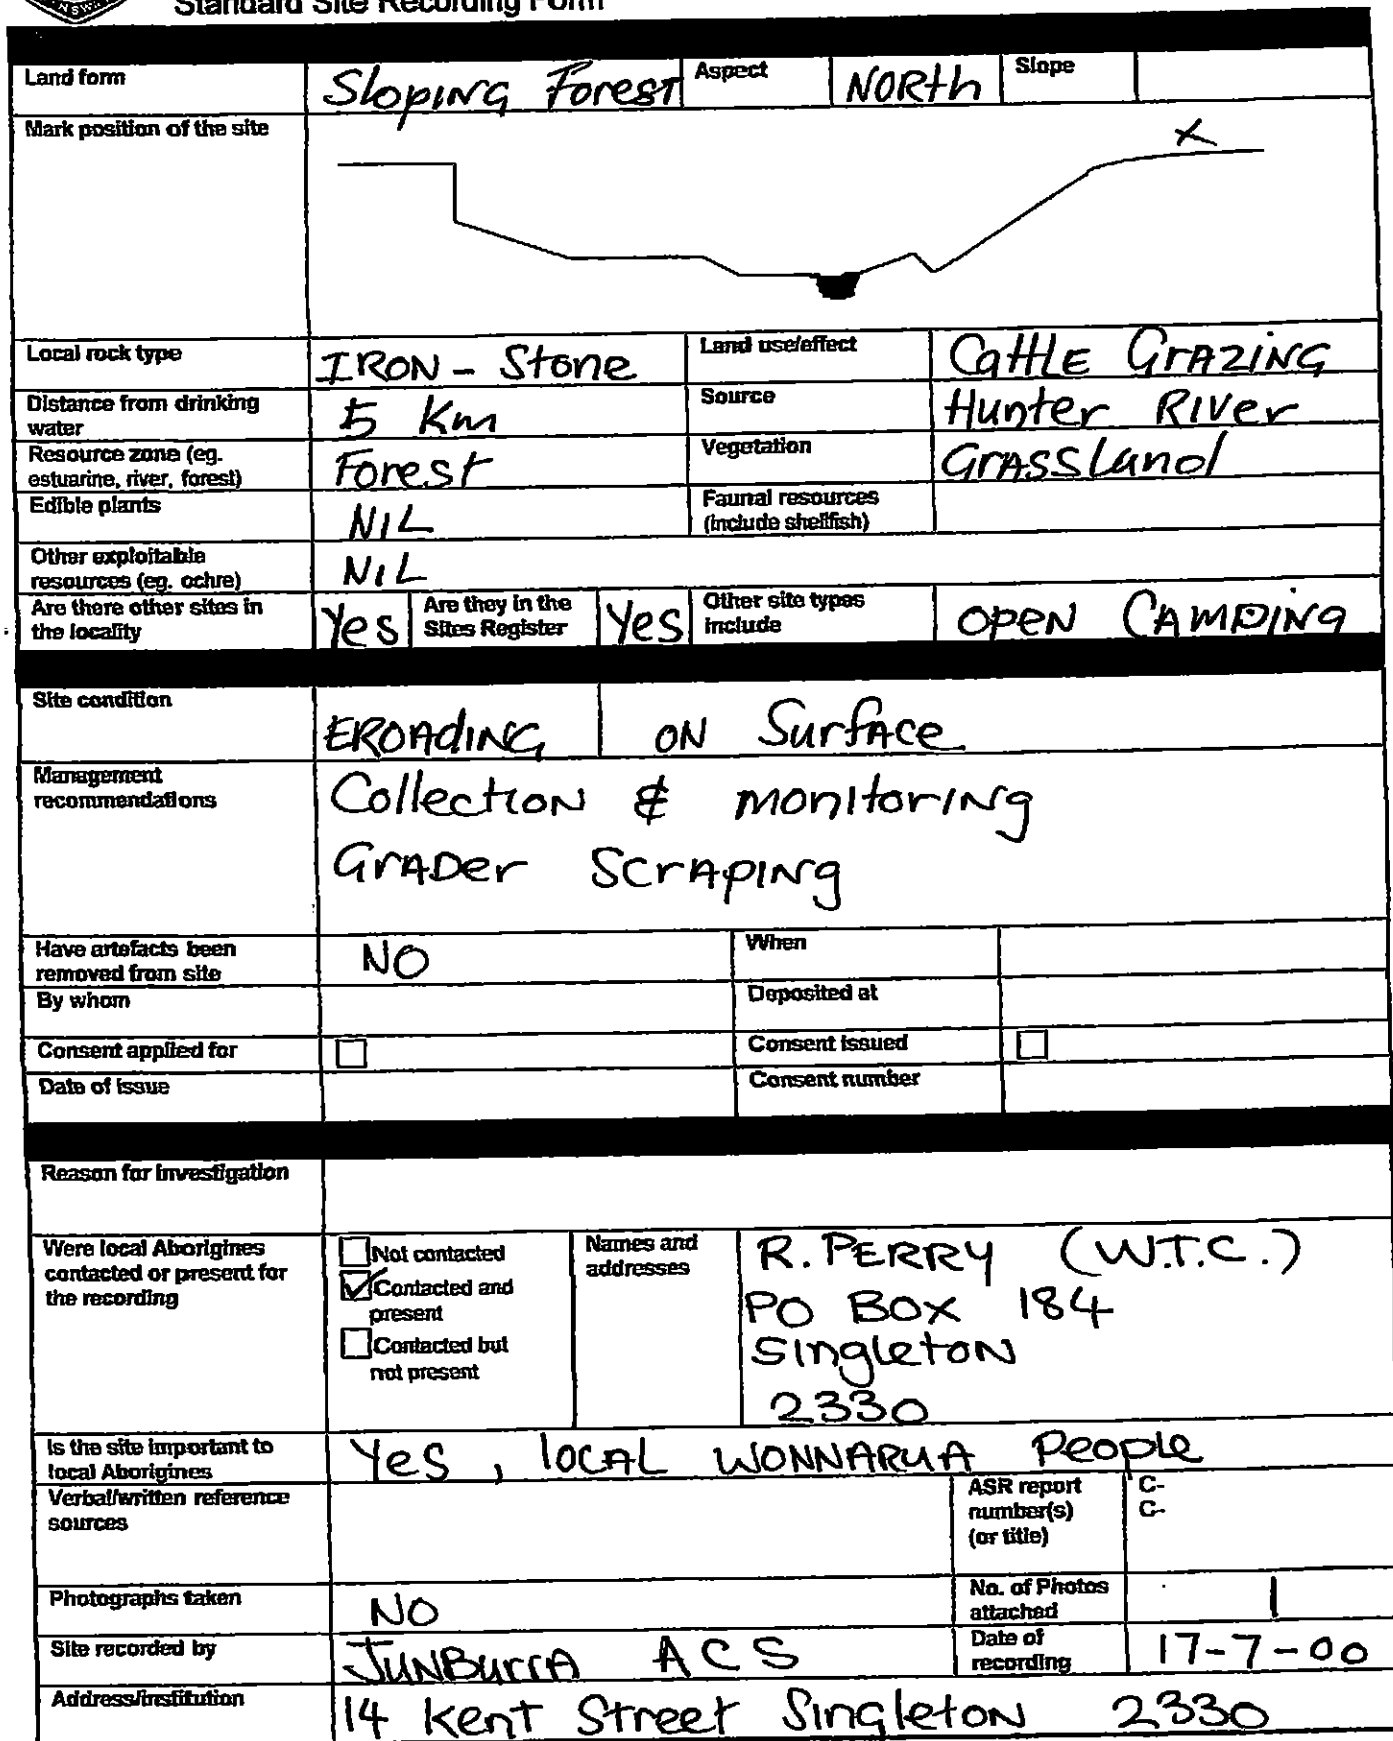 NSW
Standard Site Recording Form
Land form Sloping Forest Aspect North Slope
Mark position of the site X
Local rock type IRON - Stone Land use/effect Cattle Grazing
Distance from drinking water 5 Km Source Hunter River
Resource zone (eg. estuarine, river, forest) Forest Vegetation Grassland
Edible plants NIL Faunal resources (include shellfish)
Other exploitable resources (eg. ochre) NIL
Are there other sites in the locality Yes Are they in the Sites Register Yes Other site types include OPEN CAMPING
Site condition EROADING ON Surface
Management recommendations Collection & monitoring
Grader Scraping
Have artefacts been removed from site NO When
By whom Deposited at
Consent applied for Consent issued
Date of issue Consent number
Reason for investigation
Were local Aborigines contacted or present for the recording
Not contacted
Contacted and present
Contacted but not present
Names and addresses
R. PERRY (W.T.C.)
PO BOX 184
Singleton
2330
Is the site important to local Aborigines Yes, local WONNARUA People
Verbal/written reference sources ASR report number(s) (or title) C-
C-
Photographs taken NO No. of Photos attached 1
Site recorded by JUNBURRA ACS Date of recording 17-7-00
Address/institution 14 Kent Street Singleton 2330